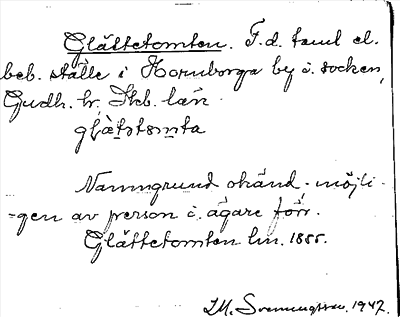 Glättetomten. F.d. tomt el.
beb. ställe i Hornborga by o. socken,
Gudh. hr, Skb. län
glätstomta
Namngrund okänd, möjli-
-gen av person i. ägare förr.
Glättetomten lm. 1855.
M. Svenningsson. 1947.